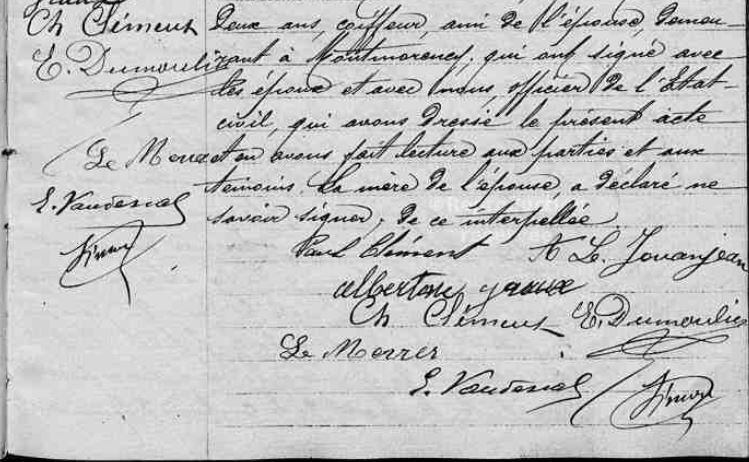 Ch Clément
E. Dumoulin
Le Merrer
E. Vaudescal
Simon
deux ans, coiffeur, ami de l'épouse, demeu-
rant à Montmorency; qui ont signé avec
les époux et avec nous, officier de l'Etat-
civil, qui avons dressé le présent acte
et en avons fait lecture aux parties et aux
témoins. La mère de l'épouse a déclaré ne
savoir signer; de ce interpellée.
Paul Clément A L. Jouanjean
Ch Clément E. Dumoulin
Le Merrer
E. Vaudescal Simon